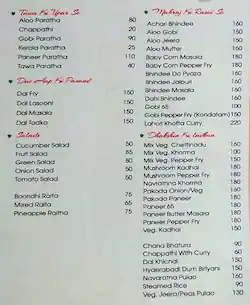 Tawa Ke Yaar Se
Aloo Paratha 80
Chappathi 20
Gobi Paratha 90
Kerala Paratha 25
Paneer Paratha 110
Tawa Paratha 40
Dal Aap Ke Pasand
Dal Fry 150
Dal Lasooni 150
Dal Masala 150
Dal Tadka 150
Salads
Cucumber Salad 50
Fruit Salad 85
Green Salad 80
Onion Salad 50
Tomato Salad 50
Boondhi Raita 75
Mixed Raita 65
Pineapple Raitha 75
Maharaj Ke Rasoi Se
Achari Bhindee 160
Aloo Gobi 150
Aloo Jeera 150
Aloo Mutter 150
Baby Corn Masala 180
Baby Corn Pepper Fry 180
Bhindee Do Pyaza 160
Bhindee Jaipuri 160
Bhindee Masala 160
Dahi Bhindee 160
Gobi 65 100
Gobi Pepper Fry (Kondatam) 150
Lahori Khofta Curry 220
Dhakshin Ka
Mix Veg. Chettinadu 160
Mix Veg. Khorma 160
Mix Veg. Pepper Fry 150
Mushroom Kadhai 180
Mushroom Pepper Fry 180
Navrathna Khorma 180
Pakoda Onion/Veg 180
Pakoda Paneer 180
Paneer 65 180
Paneer Butter Masara 180
Paneer Pepper Fry 180
Veg. Kadhai 150
Chana Bhatura
Chappathi With Curry 60
Dal Khichdi 150
Hyderabadi Dum Biriyani 150
Navaratha Pulao 160
Steamed Rice 90
Veg. Jeera/Peas Pulao 130